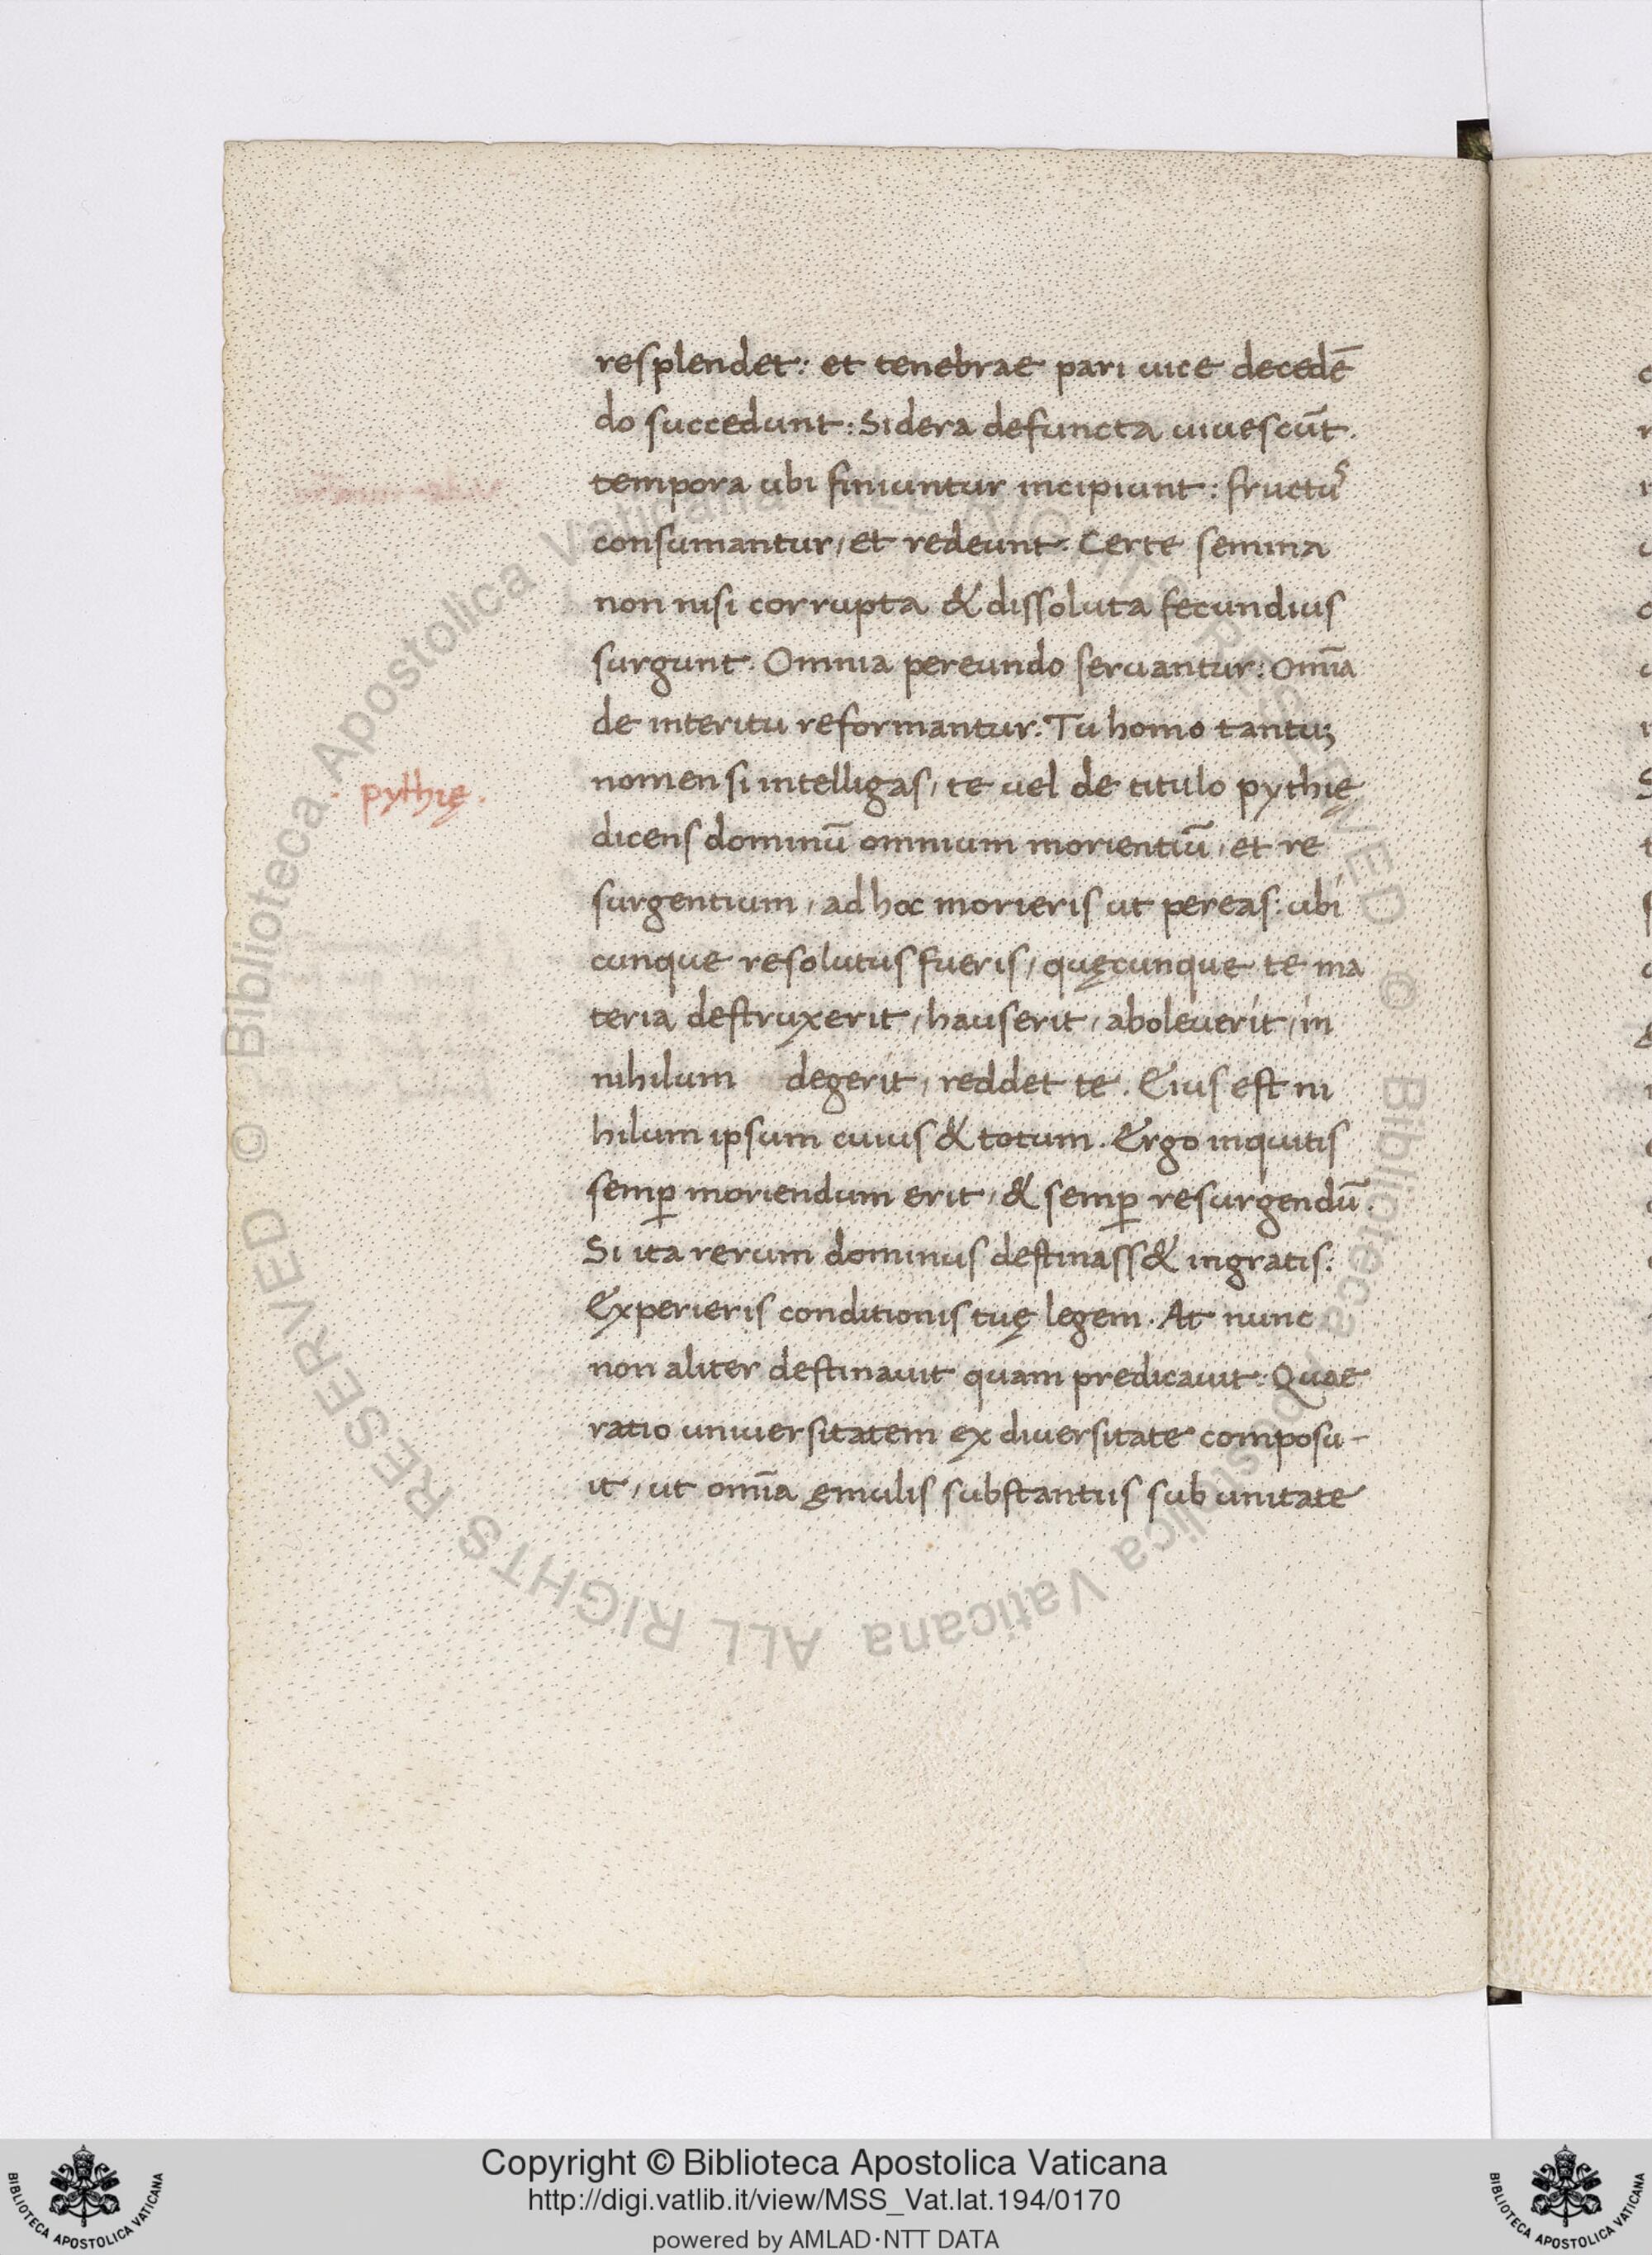 resplendet: et tenebrae pari uice decedē
do succedunt: Sidera defuncta uiuescūt.
tempora ubi finiuntur incipiunt: fructuˢ
consumantur, et redeunt. Certe semina
non nisi corrupta & dissoluta fecundius
surgunt. Omnia pereundo seruantur: Omīa
de interitu reformantur: Tu homo tantuꝫ
· pythię ·
nomen si intelligas, te uel de titulo pythię
dicens dominū omnium morientiū, et re
surgentium, ad hoc morieris ut pereas: ubi
cunque resolutus fueris, quęcunque te ma
teria destruxerit, hauserit, aboleuerit, in
nihilum degerit, reddet te. Eius est ni
hilum ipsum cuius & totum. Ergo inquitis
semꝑ moriendum erit, & semꝑ resurgendū.
Si ita rerum dominus destinass& ingratis:
Experieris conditionis tuę legem. At nunc
non aliter destinauit quam predicauit: Quae
ratio uniuersitatem ex diuersitate composu-
it, ut omīa ęmulis substantiis sub unitate
© Biblioteca Apostolica Vaticana ALL RIGHTS RESERVED © Biblioteca Apostolica Vaticana ALL RIGHTS RESERVED
Copyright © Biblioteca Apostolica Vaticana
http://digi.vatlib.it/view/MSS_Vat.lat.194/0170
powered by AMLAD·NTT DATA
BIBLIOTECA APOSTOLICA VATICANA
BIBLIOTECA APOSTOLICA VATICANA